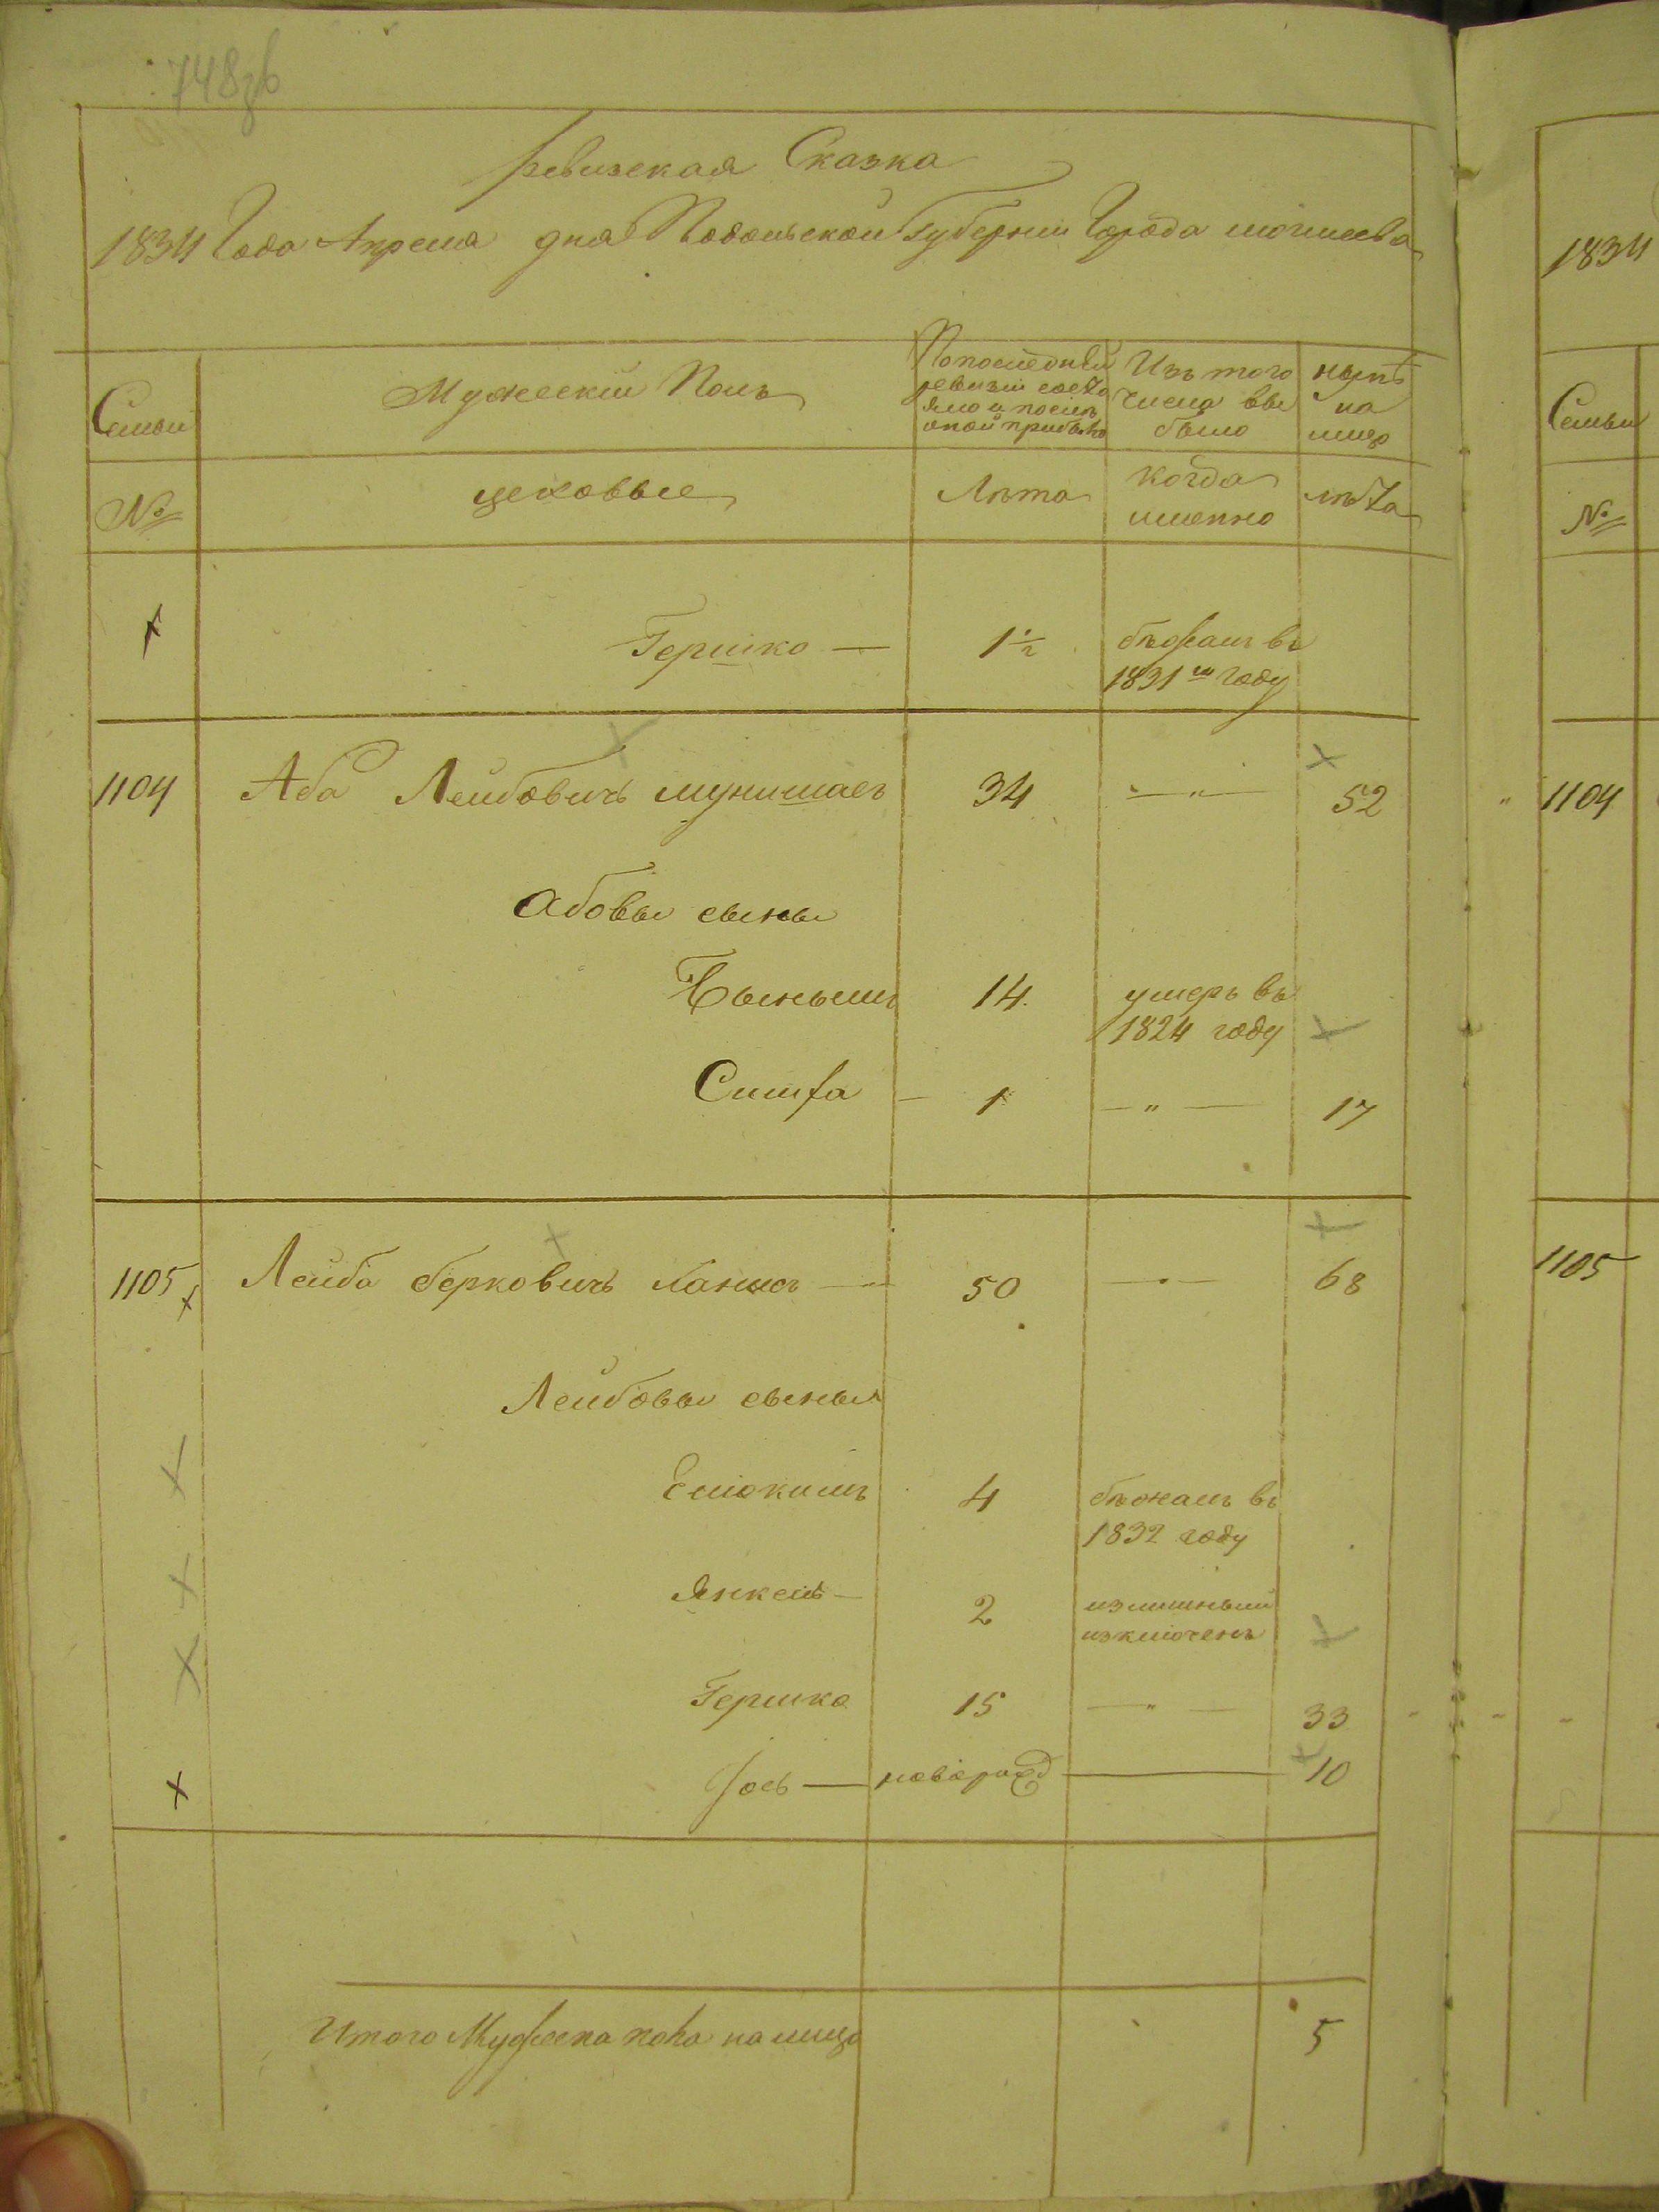 748
Ревизская Сказка
1834 Года Апреля дня Подольской Губернии Города могилева
1834
Семьи
Мужескій Полъ
По последней ревизіи состояло и после оной прибыло
Изъ того числа выбыло
нынѣ на лицо
Семьи
№
цеховые
Лѣта
когда именно
лѣта
№
Гершко — 1½ бѣжалъ въ
1831м году
1104 Аба Лейбовичъ мунишаеъ 34 — " — 52
1104
Абовы сыны
14 умеръ въ
1824 году
Симха — 1 — " — 17
1105 Лейба берковичъ — 50 — " — 68
1105
Лейбовы сыны
Елюкимъ 4 бѣжалъ въ
1832 году
Янкель — 2 излишный
изключенъ
Гершко 15 — " — 33
Іось — новорожд — 10
Итого Мужеска пола на лицо 5